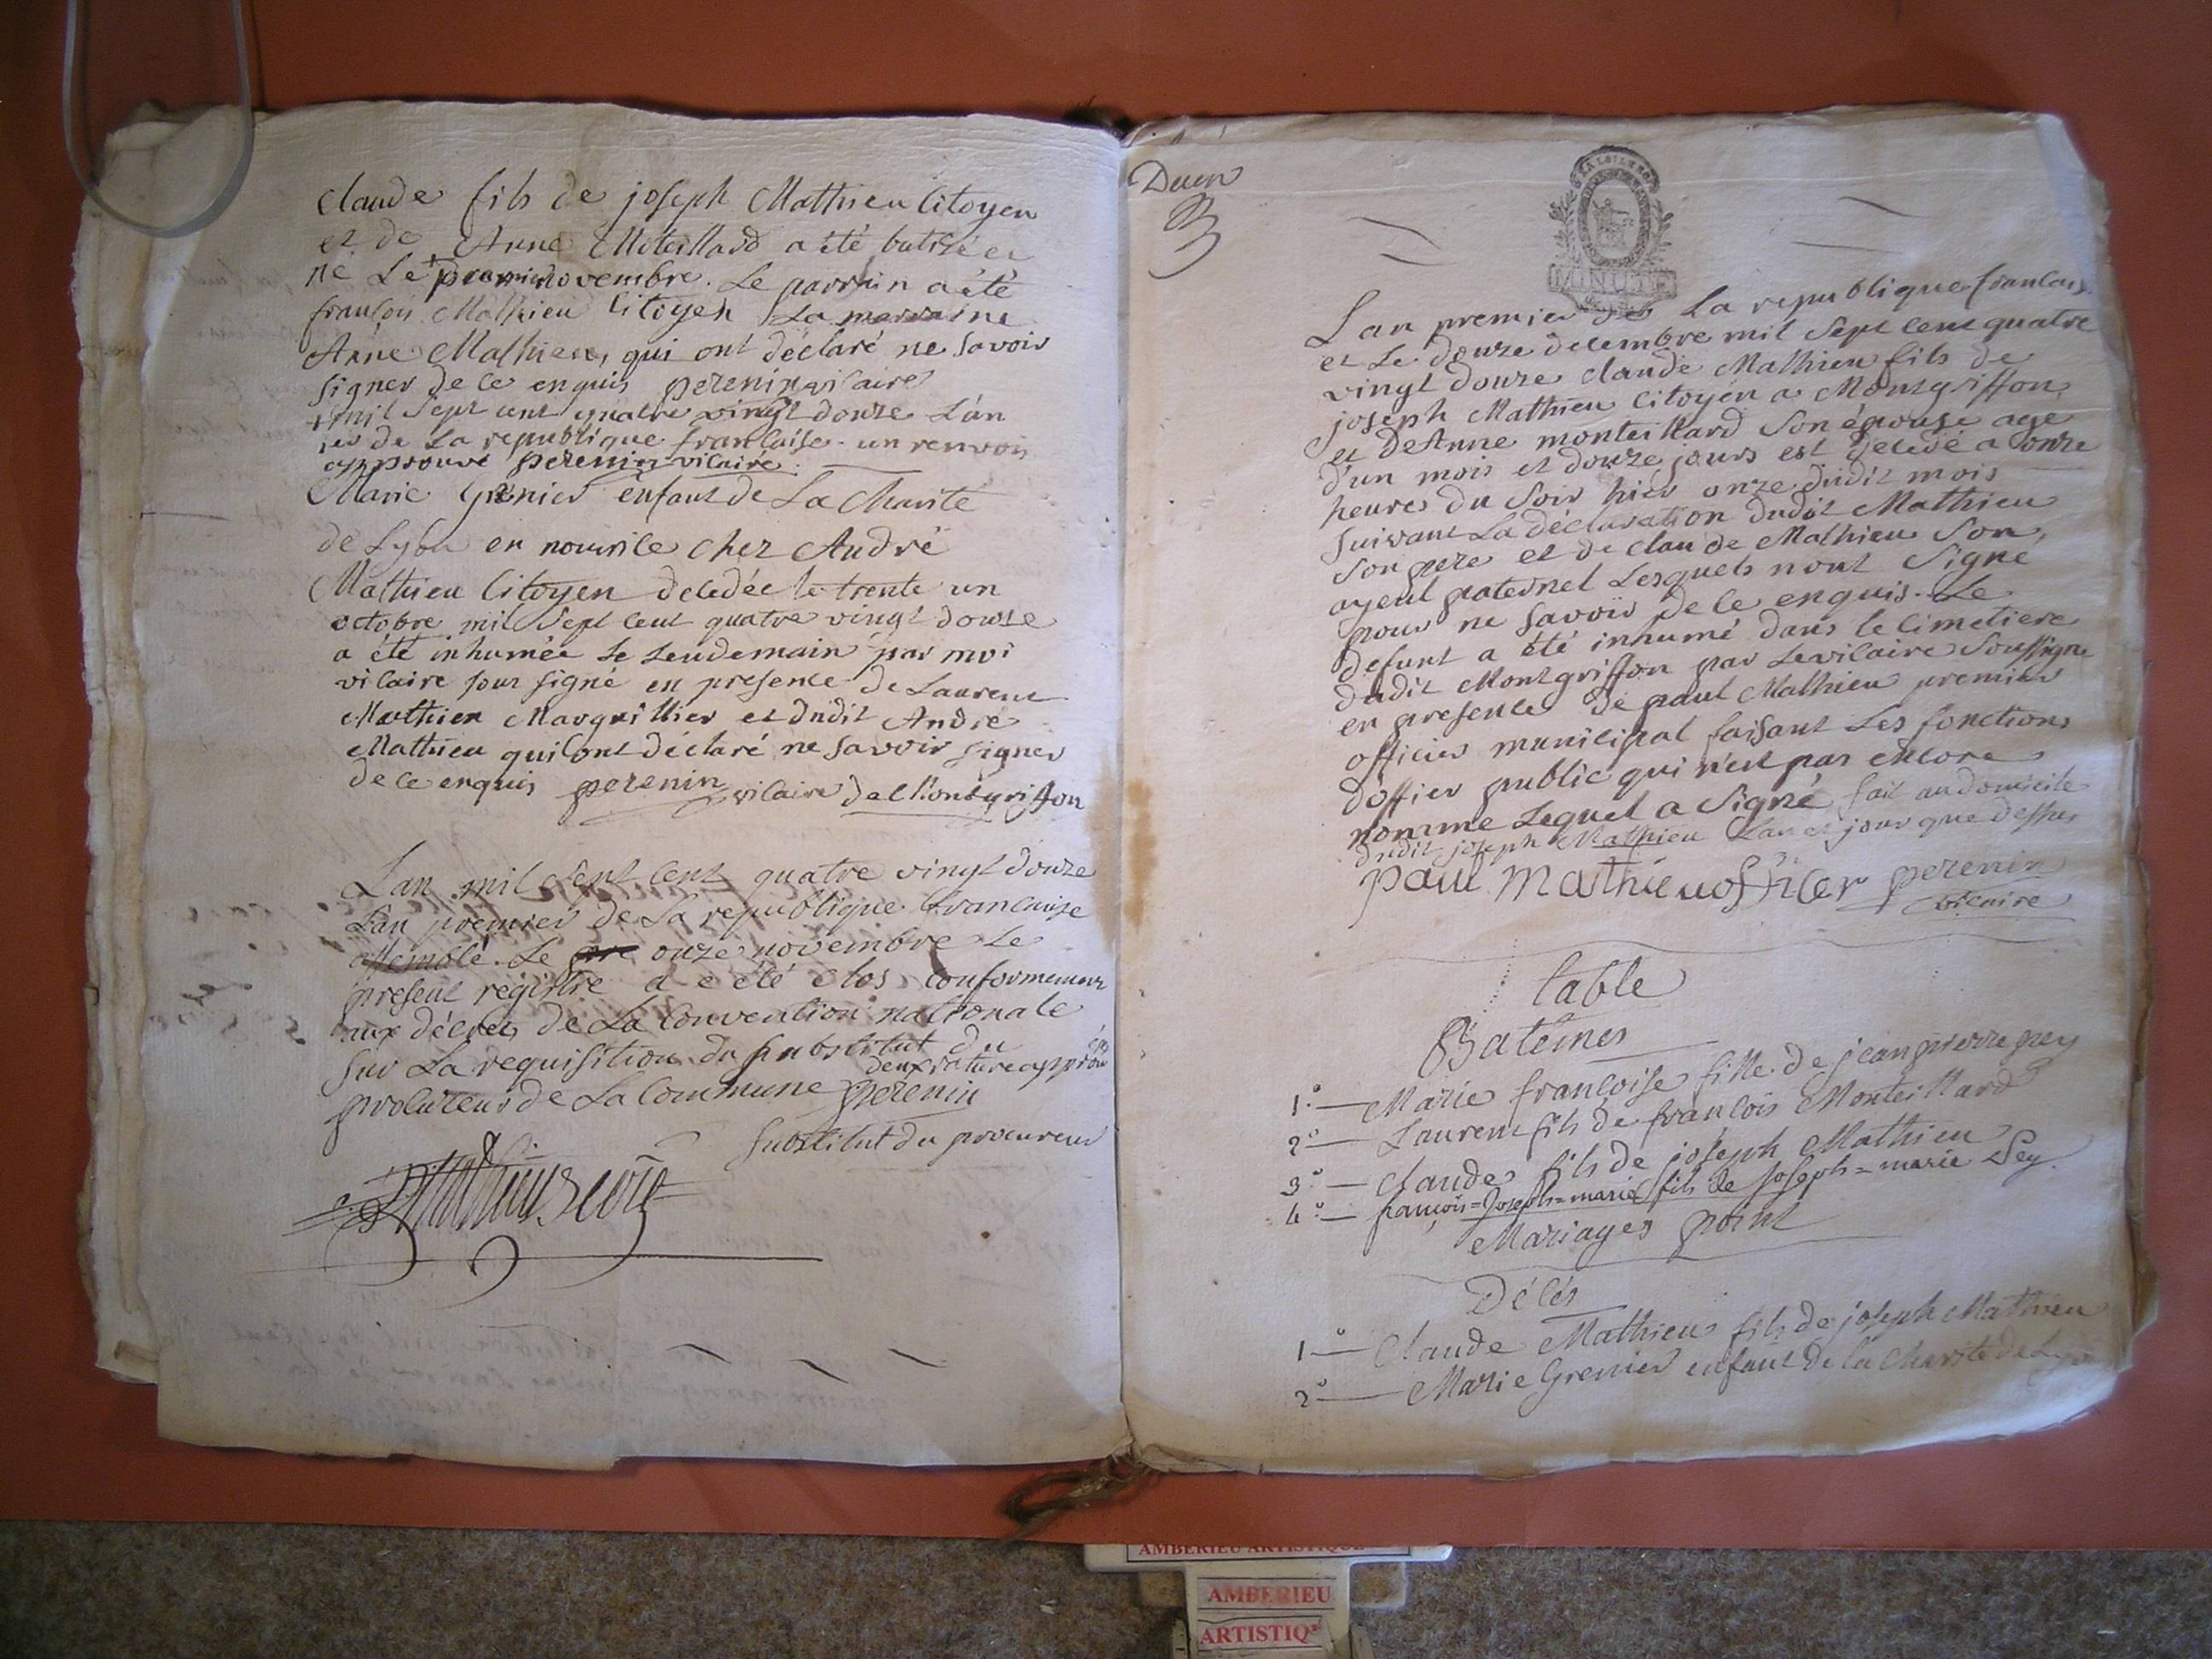 claude fils de joseph Mathieu Citoyen
et de Anne Monteillard a été batisé et
né Le + premier novembre. Le parrain a été
francois Mathieu Citoyen La marraine
Anne Mathieu, qui ont déclaré ne savoir
signer de ce enquis perenin vicaire
+ mil sept cent quatre vingt douze L'an
1er de La republique francaise. un renvoi
approuvé perenin vicaire.
Marie Grenier enfant de La Charité
de Lyon en nourrice chez André
Mathieu Citoyen decedée le trente un
octobre mil sept cent quatre vingt douze
a été inhumée le lendemain par moi
vicaire sous signé en presence de Laurent
Mathieu Marguillier et dudit André
Mathieu qui ont déclaré ne savoir signer
de ce enquis perenin vicaire de Montgriffon
Lan mil sept cent quatre vingt douze
Lan premier de La republique francaise
Le pre onze novembre Le
present régistre a été clos conformement
aux décrets de La Convention nationale
sur La requisition du substitut du
deux rature approu
procureur de La Commune perenin
substitut du procureur
Deux
MINUTE
Lan premier de La republique francais
et Le douze decembre mil sept cent quatre
vingt douze claude Mathieu fils de
joseph Mathieu Citoyen a Montgriffon
et de Anne monteillard son épouse age
d'un mois et douze jours est decedé a onze
heures du soir hier onze dudit mois
suivant La déclaration dudit Mathieu
son pere et de claude Mathieu son
ayeul paternel Lesquels n'ont signé
pour ne savoir de ce enquis. Le
defunt a été inhumé dans le cimetiere
dudit Montgriffon par Le vicaire soussigne
en presence de paul Mathieu premier
officier municipal faisant Les fonctions
d'offier public qui n'est pas encore
nommé Lequel a signé fait au domicile
dudit joseph Mathieu Lan et jour que dessus
paul mathieu officier perenin
vicaire
table
Batemes
1.° — Marie françoise fille de jean pierre pey
2° — Laurent fils de francois Monteillard
3.° — claude fils de joseph Mathieu
4.° — francois=Joseph=marie fils de Joseph=marie Pey.
Mariages point
Décés
1° — Claude Mathieu fils de joseph Mathieu
2° — Marie Grenier enfant de la charité de Lyon
AMBERIEU ARTISTIQUE
AMBERIEU
ARTISTIQUE